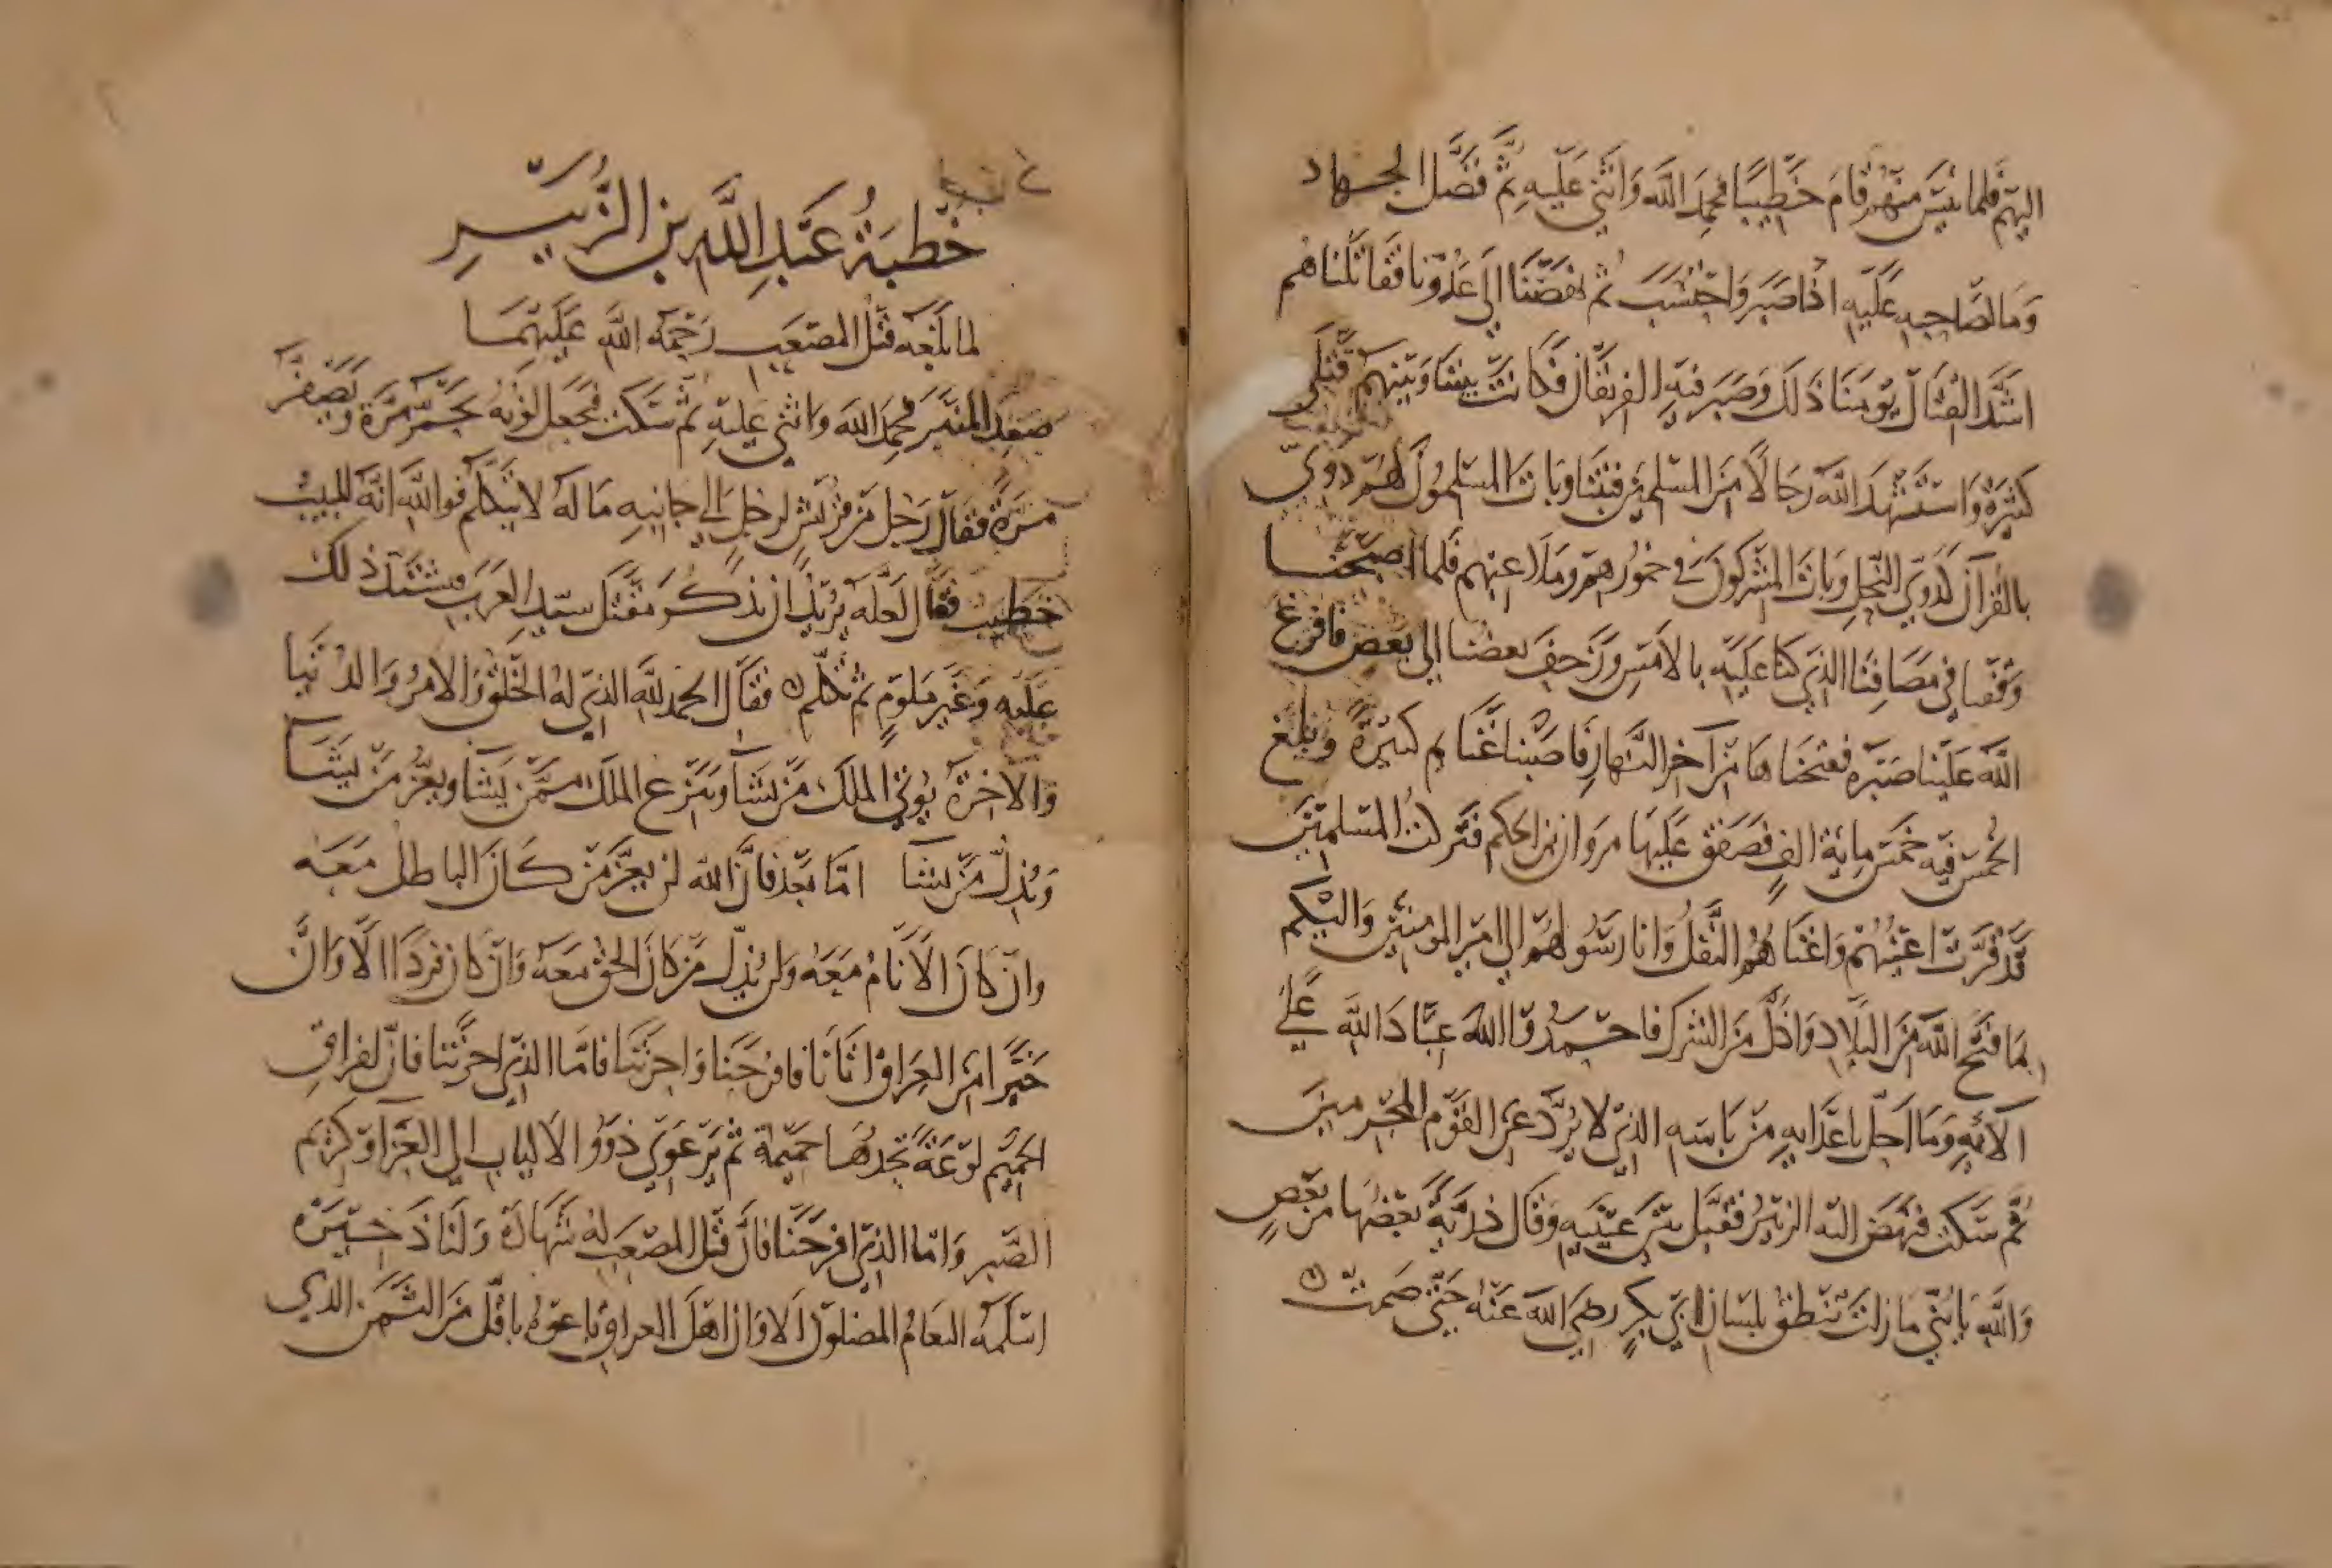 اليهم فلما يئس منهم قام خطيبا فحمد الله واثنى عليه ثم فضل الجهاد
وما لصاحبه عليه اذا صبر واحتسب ثم نهضنا الى عدونا فقاتلناهم
اشد القتال يومنا ذلك وصبر فيه الفريقان فكانت بيننا وبينهم قتلى
كثيرة واستشهد الله رجالا من المسلمين فبتنا وبات المسلمون لهم دوي
بالقرآن كدوي النحل وبات المشركون في خمورهم وملاعبهم فلما اصبحنا
وقفنا في مصافنا الذي كنا عليه بالامس وزحف بعضنا الى بعض فافرغ
الله علينا صبره ففتحناها من آخر النهار فاصبنا غنايم كثيرة وبلغ
الخمس فيه خمس ماية الف فصفق عليها مروان بن الحكم فتركت المسلمين
قد قرت اعينهم واغناهم النفل وانا رسولهم الى امير المومنين واليكم
بما فتح الله من البلاد واذل من الشرك فاحمدوا الله عباد الله على
آلائه وما احل باعدايه من باسه الذي لا يرد عن القوم المجرمين
ثم سكت فنهض اليه الزبير فقبل بين عينيه وقال ذرية بعضها من بعض
والله يا بني ما زلت تنطق بلسان ابي بكر رضي الله عنه حتى صمت
خطبة عبد الله بن الزبير
لما بلغه قتل المصعب رحمة الله عليهما
صعد المنبر فحمد الله واثنى عليه ثم سكت فجعل لونه يحمر مرة ويصفر
مرة فقال رجل من قريش لرجل الى جانبه ما له لا يتكلم فوالله انه للبيب
خطيب فقال لعله يريد ان يذكر مقتل سيد العرب فيشتد ذلك
عليه وغير ملوم ثم تكلم فقال الحمد لله الذي له الخلق والامر والدنيا
والاخرة يوتي الملك من يشا وينزع الملك ممن يشا ويعز من يشا
ويذل من يشا اما بعد فان الله لن يعز من كان الباطل معه
وان كان الانام معه ولن يذل من كان الحق معه وان كان فردا الا وان
خبرا من العراق اتانا فافرحنا واحزننا فاما الذي احزننا فان لفراق
الحميم لوعة يجدها حميمه ثم يرعوي ذوو الالباب الى العزا وكريم
الصبر واما الذي افرحنا فان قتل المصعب له شهادة ولنا ذخيرة
اسلمه النعام المصلون الا وان اهل العراق باعوه باقل من الثمن الذي